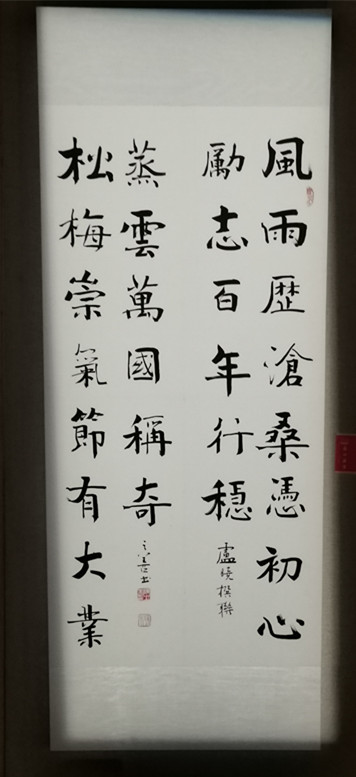 風雨歷滄桑憑初心
勵志百年行穩
盧曉撰聯
松梅崇氣節有大業
蒸雲萬國稱奇